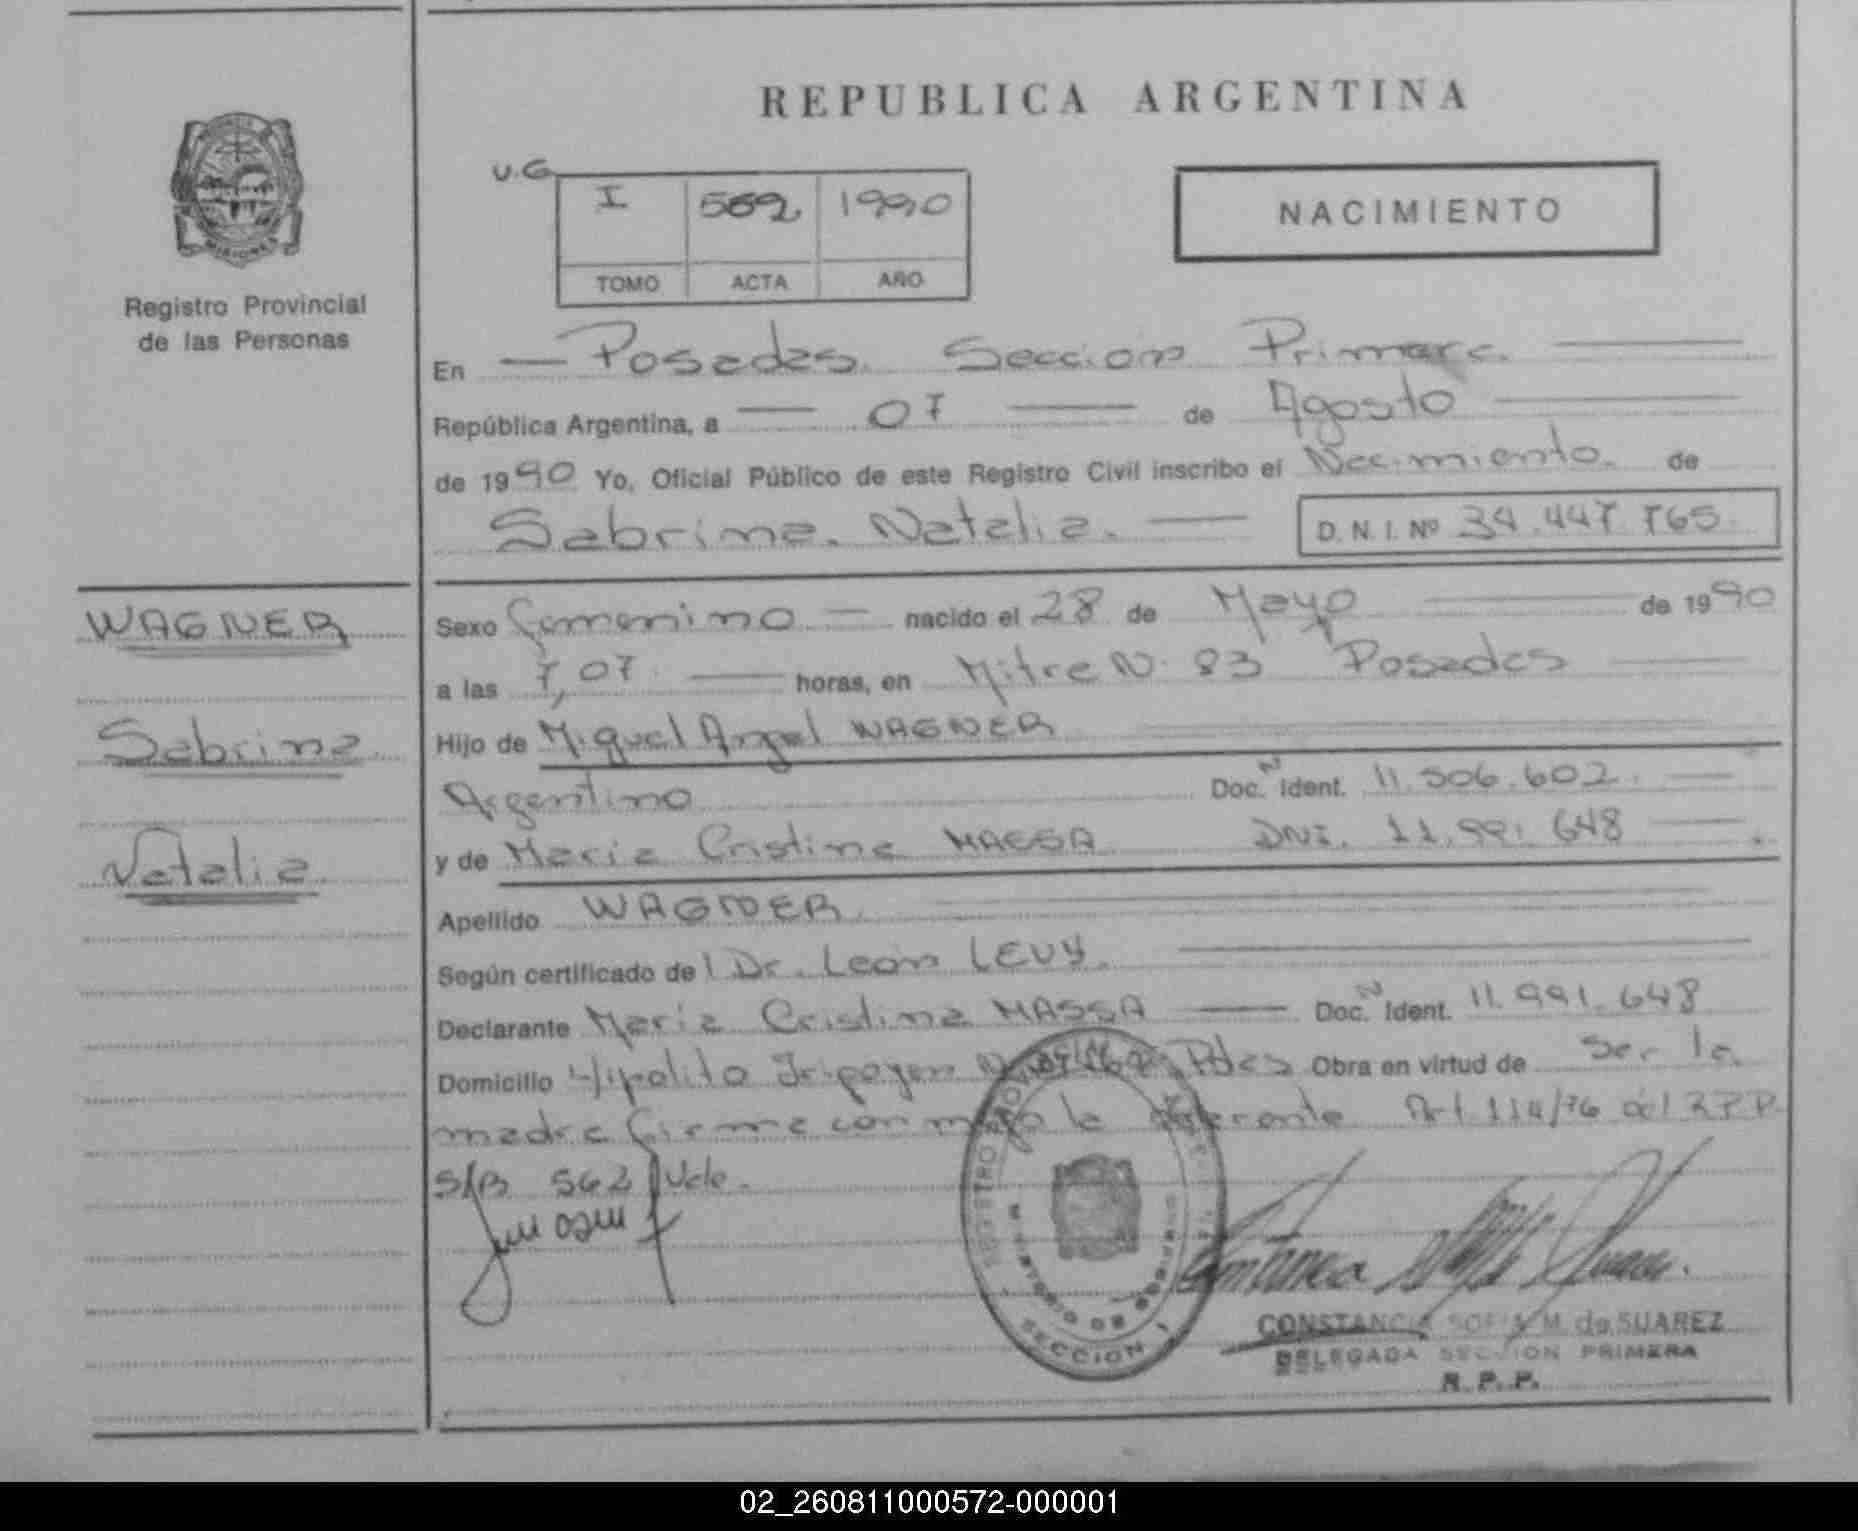 REPUBLICA ARGENTINA
U.G.
I 562 1990
TOMO ACTA AÑO
NACIMIENTO
MISIONES
Registro Provincial
de las Personas
En Posadas Sección Primera
República Argentina, a 07 de Agosto
de 1990 Yo, Oficial Público de este Registro Civil inscribo el Nacimiento de
Sabrina Natalia. D. N. I. Nº 34.447.765
WAGNER
Sabrina
Natalia
Sexo femenino nacido el 28 de Mayo de 1990
a las 7,07 horas, en Mitre N. 83 Posadas
Hijo de Miguel Angel WAGNER
Argentino Doc. N Ident. 11.506.602
y de Maria Cristina MASSA DNI. 11.991.648
Apellido WAGNER
Según certificado del Dr. León LEVY
Declarante Maria Cristina MASSA Doc. N Ident. 11.991.648
Domicilio Hipolito Irigoyen Pdas Obra en virtud de Ser la
madre firma conmigo la Art 114/76 del R.P.P.
S/B 562 Vale.
REGISTRO
MINISTERIO DE GOBIERNO
SECCION 1
CONSTANCIA SOFIA M. de SUAREZ
DELEGADA SECCION PRIMERA
R. P. P.
02_260811000572-000001